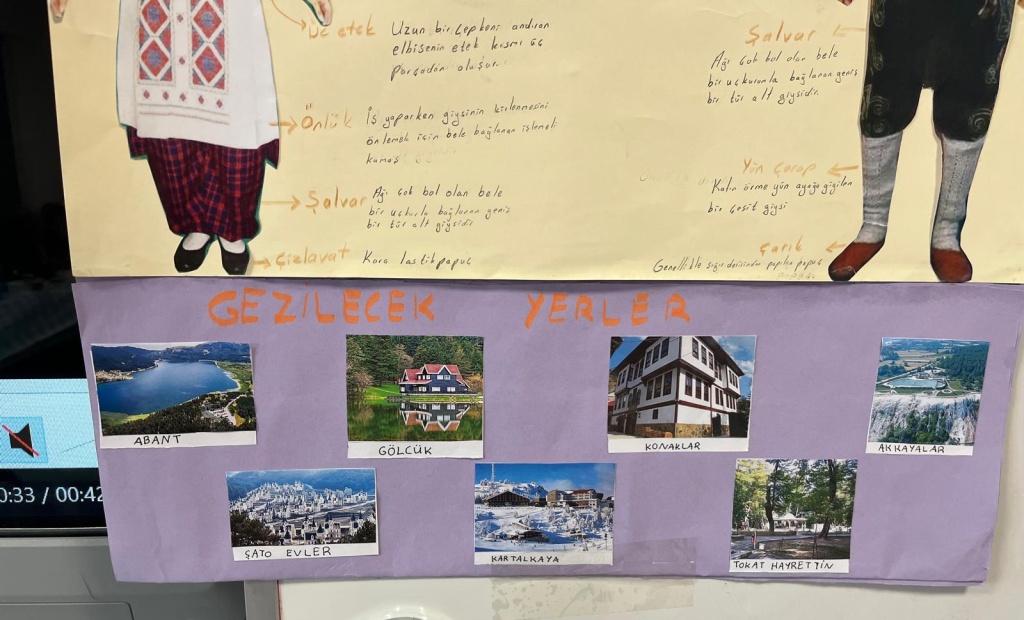 Üç etek
Uzun bir çepkeni andıran
elbisenin etek kısmı üç
parçadan oluşur.
Önlük
İş yaparken giysinin kirlenmesini
önlemek için bele bağlanan işlemeli
kumaş
Şalvar
Ağı çok bol olan bele
bir uçkurla bağlanan geniş
bir tür alt giysidir
Cizlavat
Kara lastik papuç
Şalvar
Ağı çok bol olan bele
bir uçkurla bağlanan geniş
bir tür alt giysidir.
Yün çorap
Kalın örme yün ayağa giyilen
bir çeşit giysi
Çarık
Genellikle sığır derisinden yapılan papuç
GEZİLECEK YERLER
ABANT
GÖLCÜK
KONAKLAR
AKKAYALAR
ŞATO EVLER
KARTALKAYA
TOKAT HAYRETTİN
0:33 / 00:42